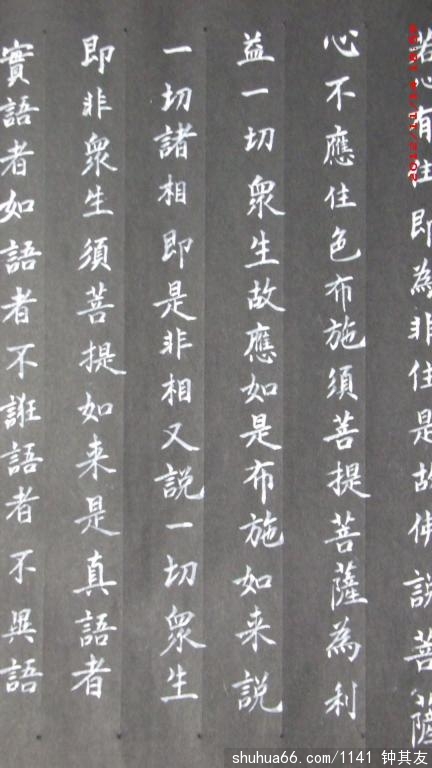 若心有住即為非住是故佛說菩薩
心不應住色布施須菩提菩薩為利
益一切衆生故應如是布施如来說
一切諸相即是非相又說一切衆生
即非衆生須菩提如来是真語者
實語者如語者不誑語者不異語
shuhua66.com/1141 钟其友